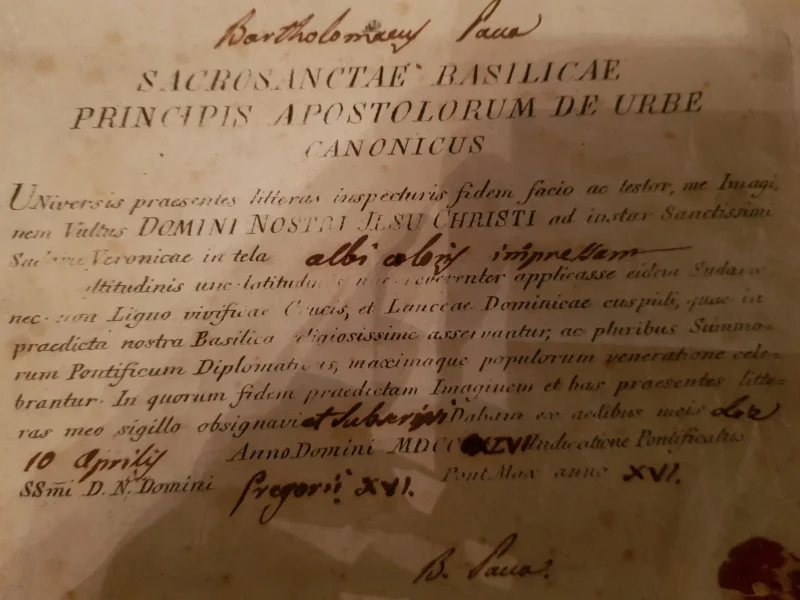 Bartholomaeus Pacca
SACROSANCTAE BASILICAE
PRINCIPIS APOSTOLORUM DE URBE
CANONICUS
UNiversis praesentes litteras inspecturis fidem facio ac testor, me Imagi-
nem Vultus DOMINI NOSTRI JESU CHRISTI ad instar Sanctissimi
Sudarii Veronicae in tela albi coloris impressam
altitudinis unc. latitudinis reverenter applicasse eidem Sudario
nec-non Ligno vivificae Crucis, et Lanceae Dominicae cuspidi, quae in
praedicta nostra Basilica religiosissime asservantur, ac pluribus Summo-
rum Pontificum Diplomaticis, maximaque populorum veneratione cele-
brantur. In quorum fidem praedictam Imaginem et has praesentes litte-
ras meo sigillo obsignavi et subscripsi Dabam ex aedibus meis
10 Aprilis Anno Domini MDCC XLVI Indicatione Pontificatus
SSmi D. N. Domini Gregorii XVI. Pont. Max anno XVI.
B. Pacca.